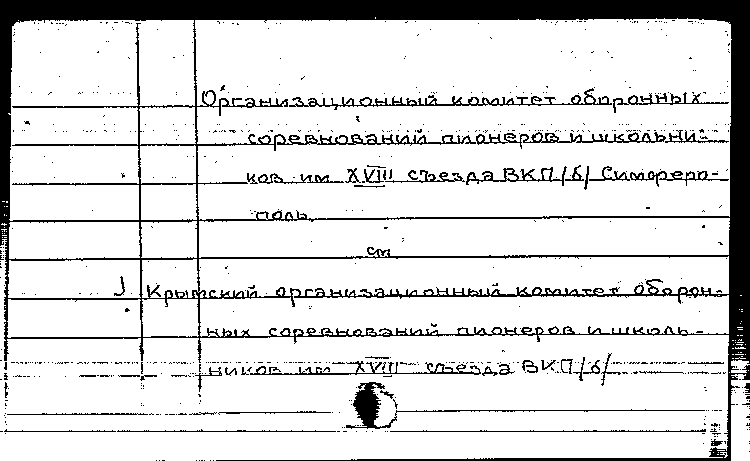 Организационный комитет оборонных
соревнований пионеров и школьни-
ков им XVIII съезда ВКП/б/ Симферо-
поль.
см
Крымский организационный комитет оборон-
ных соревнований пионеров и школь-
ников им XVIII съезда ВКП/б/